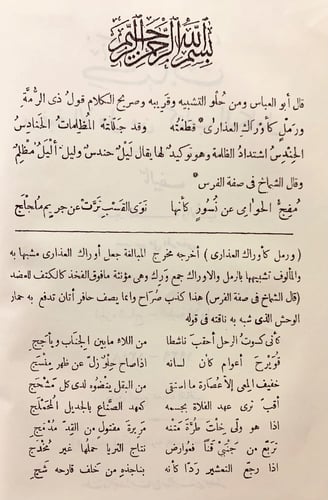 بسم الله الرحمن الرحيم
قال أبو العباس ومن حلو التشبيه وقريبه وصريح الكلام قول ذى الرمة
ورمل كأوراك العذارى قطعته وقد جللته المظلمات الحنادس
الحندس اشتداد الظلمة وهو توكيد لها يقال ليل حندس وليل أليل مظلم
وقال الشماخ فى صفة الفرس
مفج الحوامى عن نسور كأنها نوى القسب ترت عن جريم ملجلج
( ورمل كأوراك العذارى ) أخرجه مخرج المبالغة جعل أوراك العذارى مشبها به
والمألوف تشبيهها بالرمل والاوراك جمع ورك وهى مؤنثة مافوق الفخذ كالكتف للعضد
( قال الشماخ فى صفة الفرس ) هذا كذب صراح وانما يصف حافر أتان تدفع به حمار
الوحش الذى شبه به ناقته فى قوله
كأنى كسوت الرحل أحقب ناشطا من اللاء مابين الجناب ويأجج
قويرح أعوام كأن لسانه اذا صاح حلو زل عن ظهر منسج
خفيف المعى الا عصارة ما استقى من البقل ينضوه لدى كل مشحج
أقب ترى عهد الفلاة بجسمه كعهد الصناع بالجديل المحملج
اذا هو ولى خلت طرة متنه مريرة مفتول من القد مدمج
تربع من جنبى قنا فعوارض نتاج الثريا حملها غير مخدج
اذا رجع التعشير ردا كأنه بناجذه من خلف قارحه شج